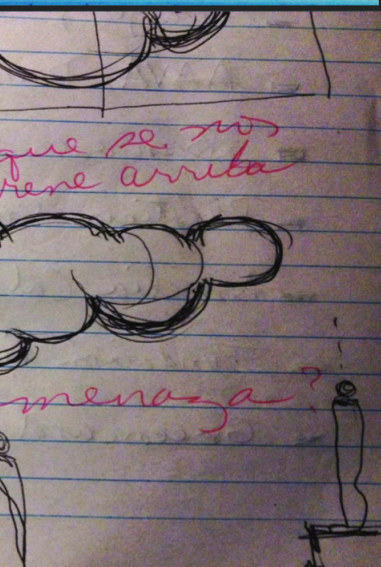 que se nos
viene arriba
menaza?